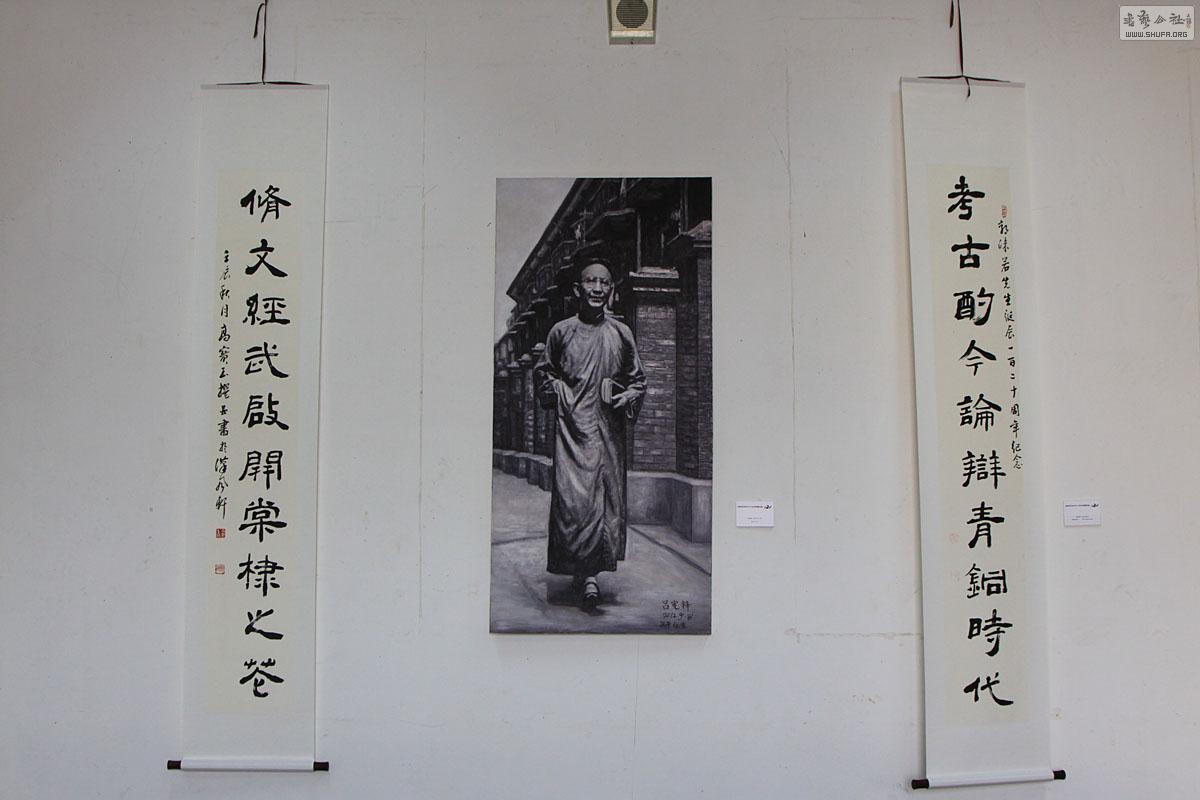 書藝公社
WWW.SHUFA.ORG
郭沫若先生誕辰一百二十周年紀念
考古酌今論辯青銅時代
脩文經武啟開棠棣之花
壬辰秋月高寶玉撰書於漢風軒
2012.9